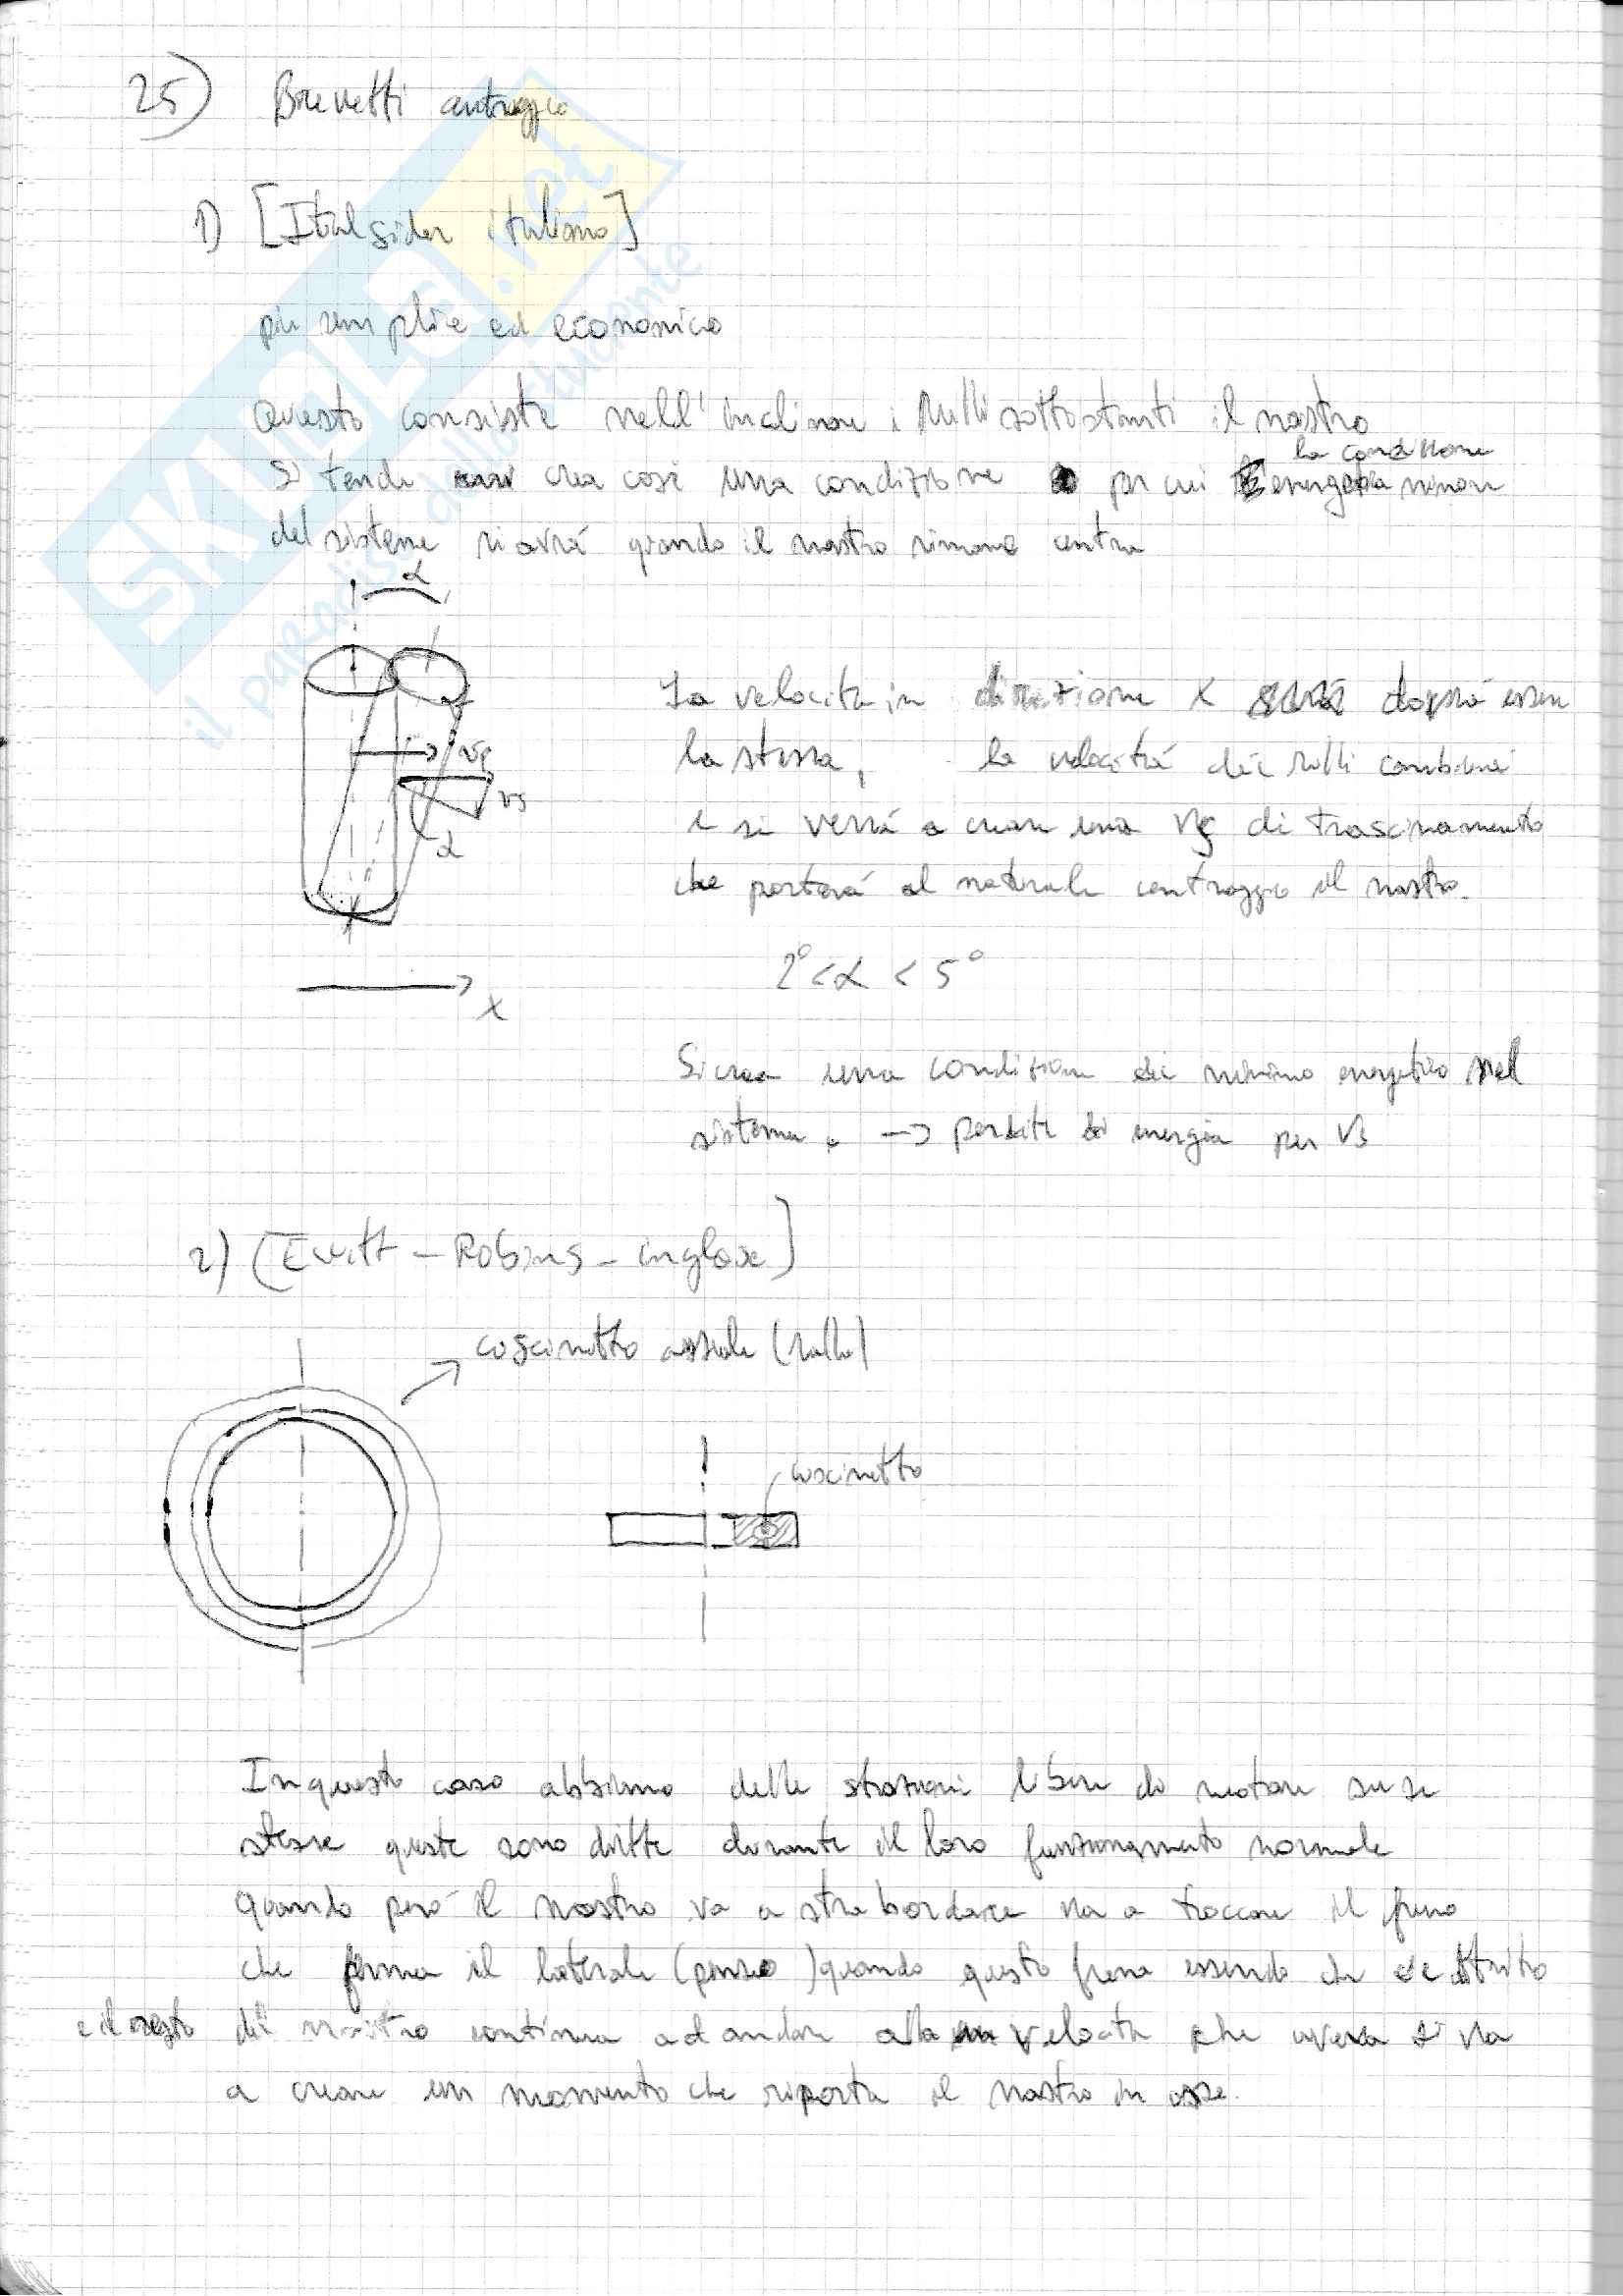 25) Brevetti centraggio
1) [Italsider italiano]
più semplice ed economico
Questo consiste nell'inclinare i rulli sottostanti il nastro
la condizione
Si tende crea così una condizione per cui energetica minore
del sistema si avrà quando il nastro rimane centra
α
La velocità in direzione x dovrà essere
la stessa, la velocità dei rulli cambierà
e si verrà a creare una Vs di trascinamento
che porterà al naturale centraggio il nastro.
Vp
Vs
α
2° < α < 5°
x
Si crea una condizione di minimo energetico nel
sistema. → perdite di energia per Vs
2) [Ewitt - Robins - inglese]
coscinetto assiale (ralla)
coscinetto
In questo caso abbiamo delle stazioni libere di ruotare su se
stesse queste sono dritte durante il loro funzionamento normale
Quando però il nastro va a strabordare va a toccare il freno
che ferma il laterale quando questo frena essendo che
e il resto del nastro continua ad andare alla velocità che aveva si va
a creare un momento che riporta il nastro in asse.
SKUOLA.net
il paradiso dello studente